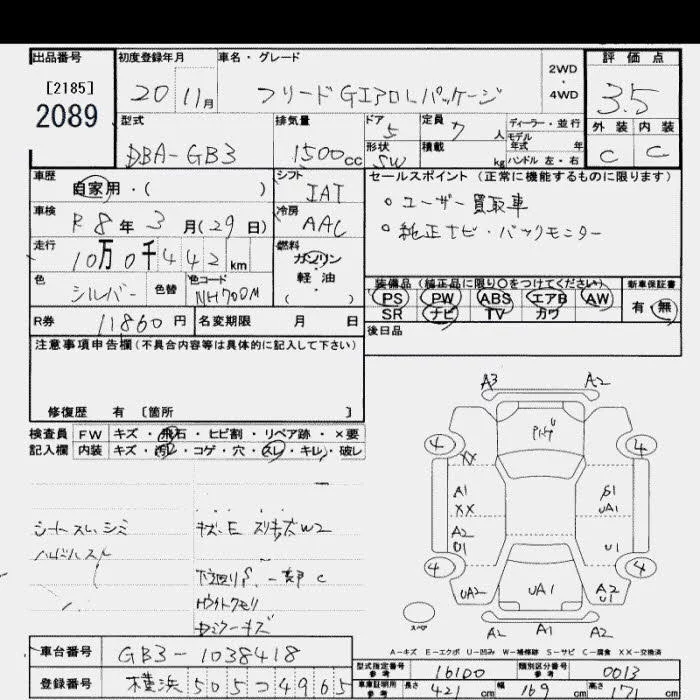 出品番号 初度登録年月 車名・グレード 2WD・4WD 評価点
[2185]
2089
20 11月 フリードGエアロLパッケージ 3.5
型式 排気量 ドア 5 定員 7 人 ディーラー・並行 外装 内装
DBA-GB3 1500cc 形状 SW 積載 kg モデル年式 年 ハンドル 左・右 C C
車歴 シフト セールスポイント (正常に機能するものに限ります)
自家用・( ) IAT 。ユーザー買取車
車検 R8年3月(29日) 冷房 AAC 。純正ナビ・バックモニター
走行 10万0千442km 燃料 ガソリン
軽・油
( )
色 シルバー 色替 色コード NH700M
装備品 (純正品に限り〇をつけてください) 新車保証書
PS PW ABS エアB AW 有・無
SR ナビ TV カワ
R券 11860円 名変期限 月 日 後日品
注意事項申告欄 (不具合内容等は具体的に記入して下さい)
修復歴 有 [箇所 ]
検査員 FW キズ・飛石・ヒビ割・リペア跡・×要
記入欄 内装 キズ・汚レ・コゲ・穴・スレ・キレ・破レ
A3 A2
4 4
XX
A1 S1
XX UA1
A2
U1 U1
4 4
UA2 UA1 A2
U1
A2 A1 A2
スペア
シートスレ、シミ
ハンドルスレ
下廻りS、一部C
A-キズ E-エクボ U-凹み W-補修跡 S-サビ C-腐食 XX-交換済
車台番号 GB3-1038418
登録番号 横浜 505 つ 4965
型式指定番号 参考 16100 類別区分番号 参考 0013
車庫証明用 参考 長さ 421 cm 幅 169 cm 高さ 171 cm